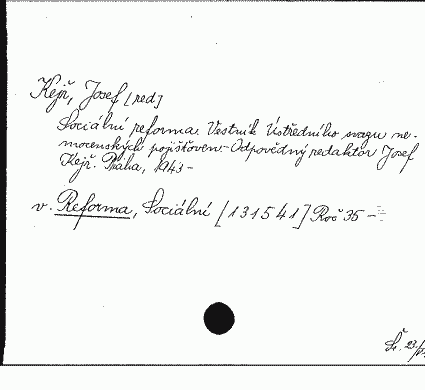 Kejř, Josef [red]
Sociální reforma. Vestník Ústředního svazu ne-
mocenských pojišťoven - Odpovědný redaktor Josef
Kejř. Praha, 1943 -
v. Reforma, Sociální [131541] Roč 35 -